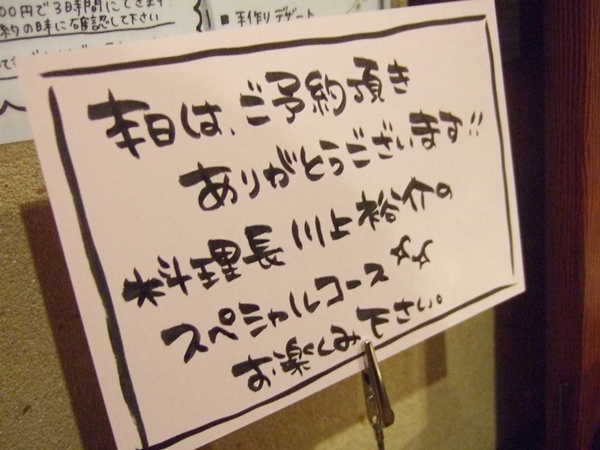 00円で3時間にできます
約の時に確認して下さい
■手作りデザート
本日は、ご予約頂き
ありがとうございます!!
料理長川上裕介の
スペシャルコース☆☆
お楽しみ下さい。